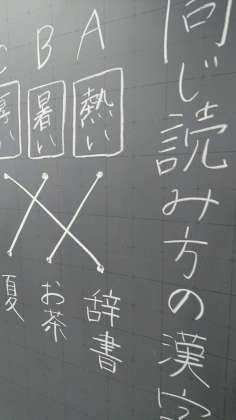 同じ読み方の漢字
A
B
C
熱い
暑い
い
辞書
お茶
夏